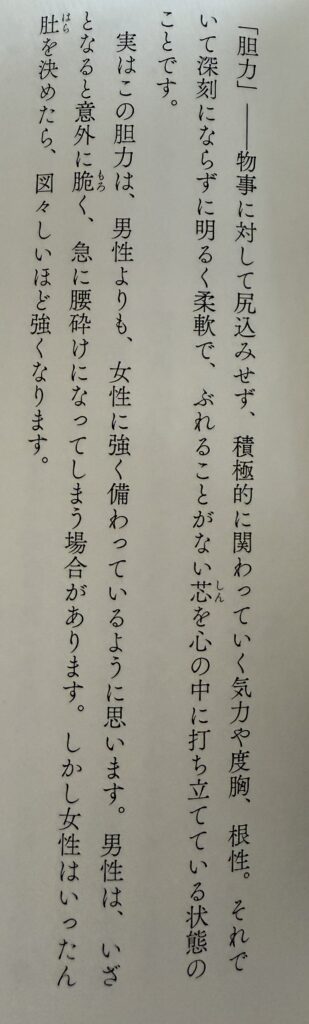 「胆力」――物事に対して尻込みせず、積極的に関わっていく気力や度胸、根性。それで
いて深刻にならずに明るく柔軟で、ぶれることがない芯しんを心の中に打ち立てている状態の
ことです。
実はこの胆力は、男性よりも、女性に強く備わっているように思います。男性は、いざ
となると意外に脆もろく、急に腰砕けになってしまう場合があります。しかし女性はいったん
肚はらを決めたら、図々しいほど強くなります。